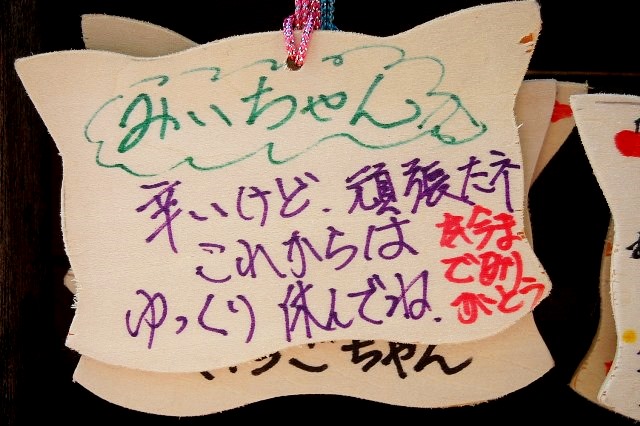 みいちゃん
辛いけど、頑張たネ
これからは
ゆっくり休んでね。
今ま
であり
がとう
いちごちゃん